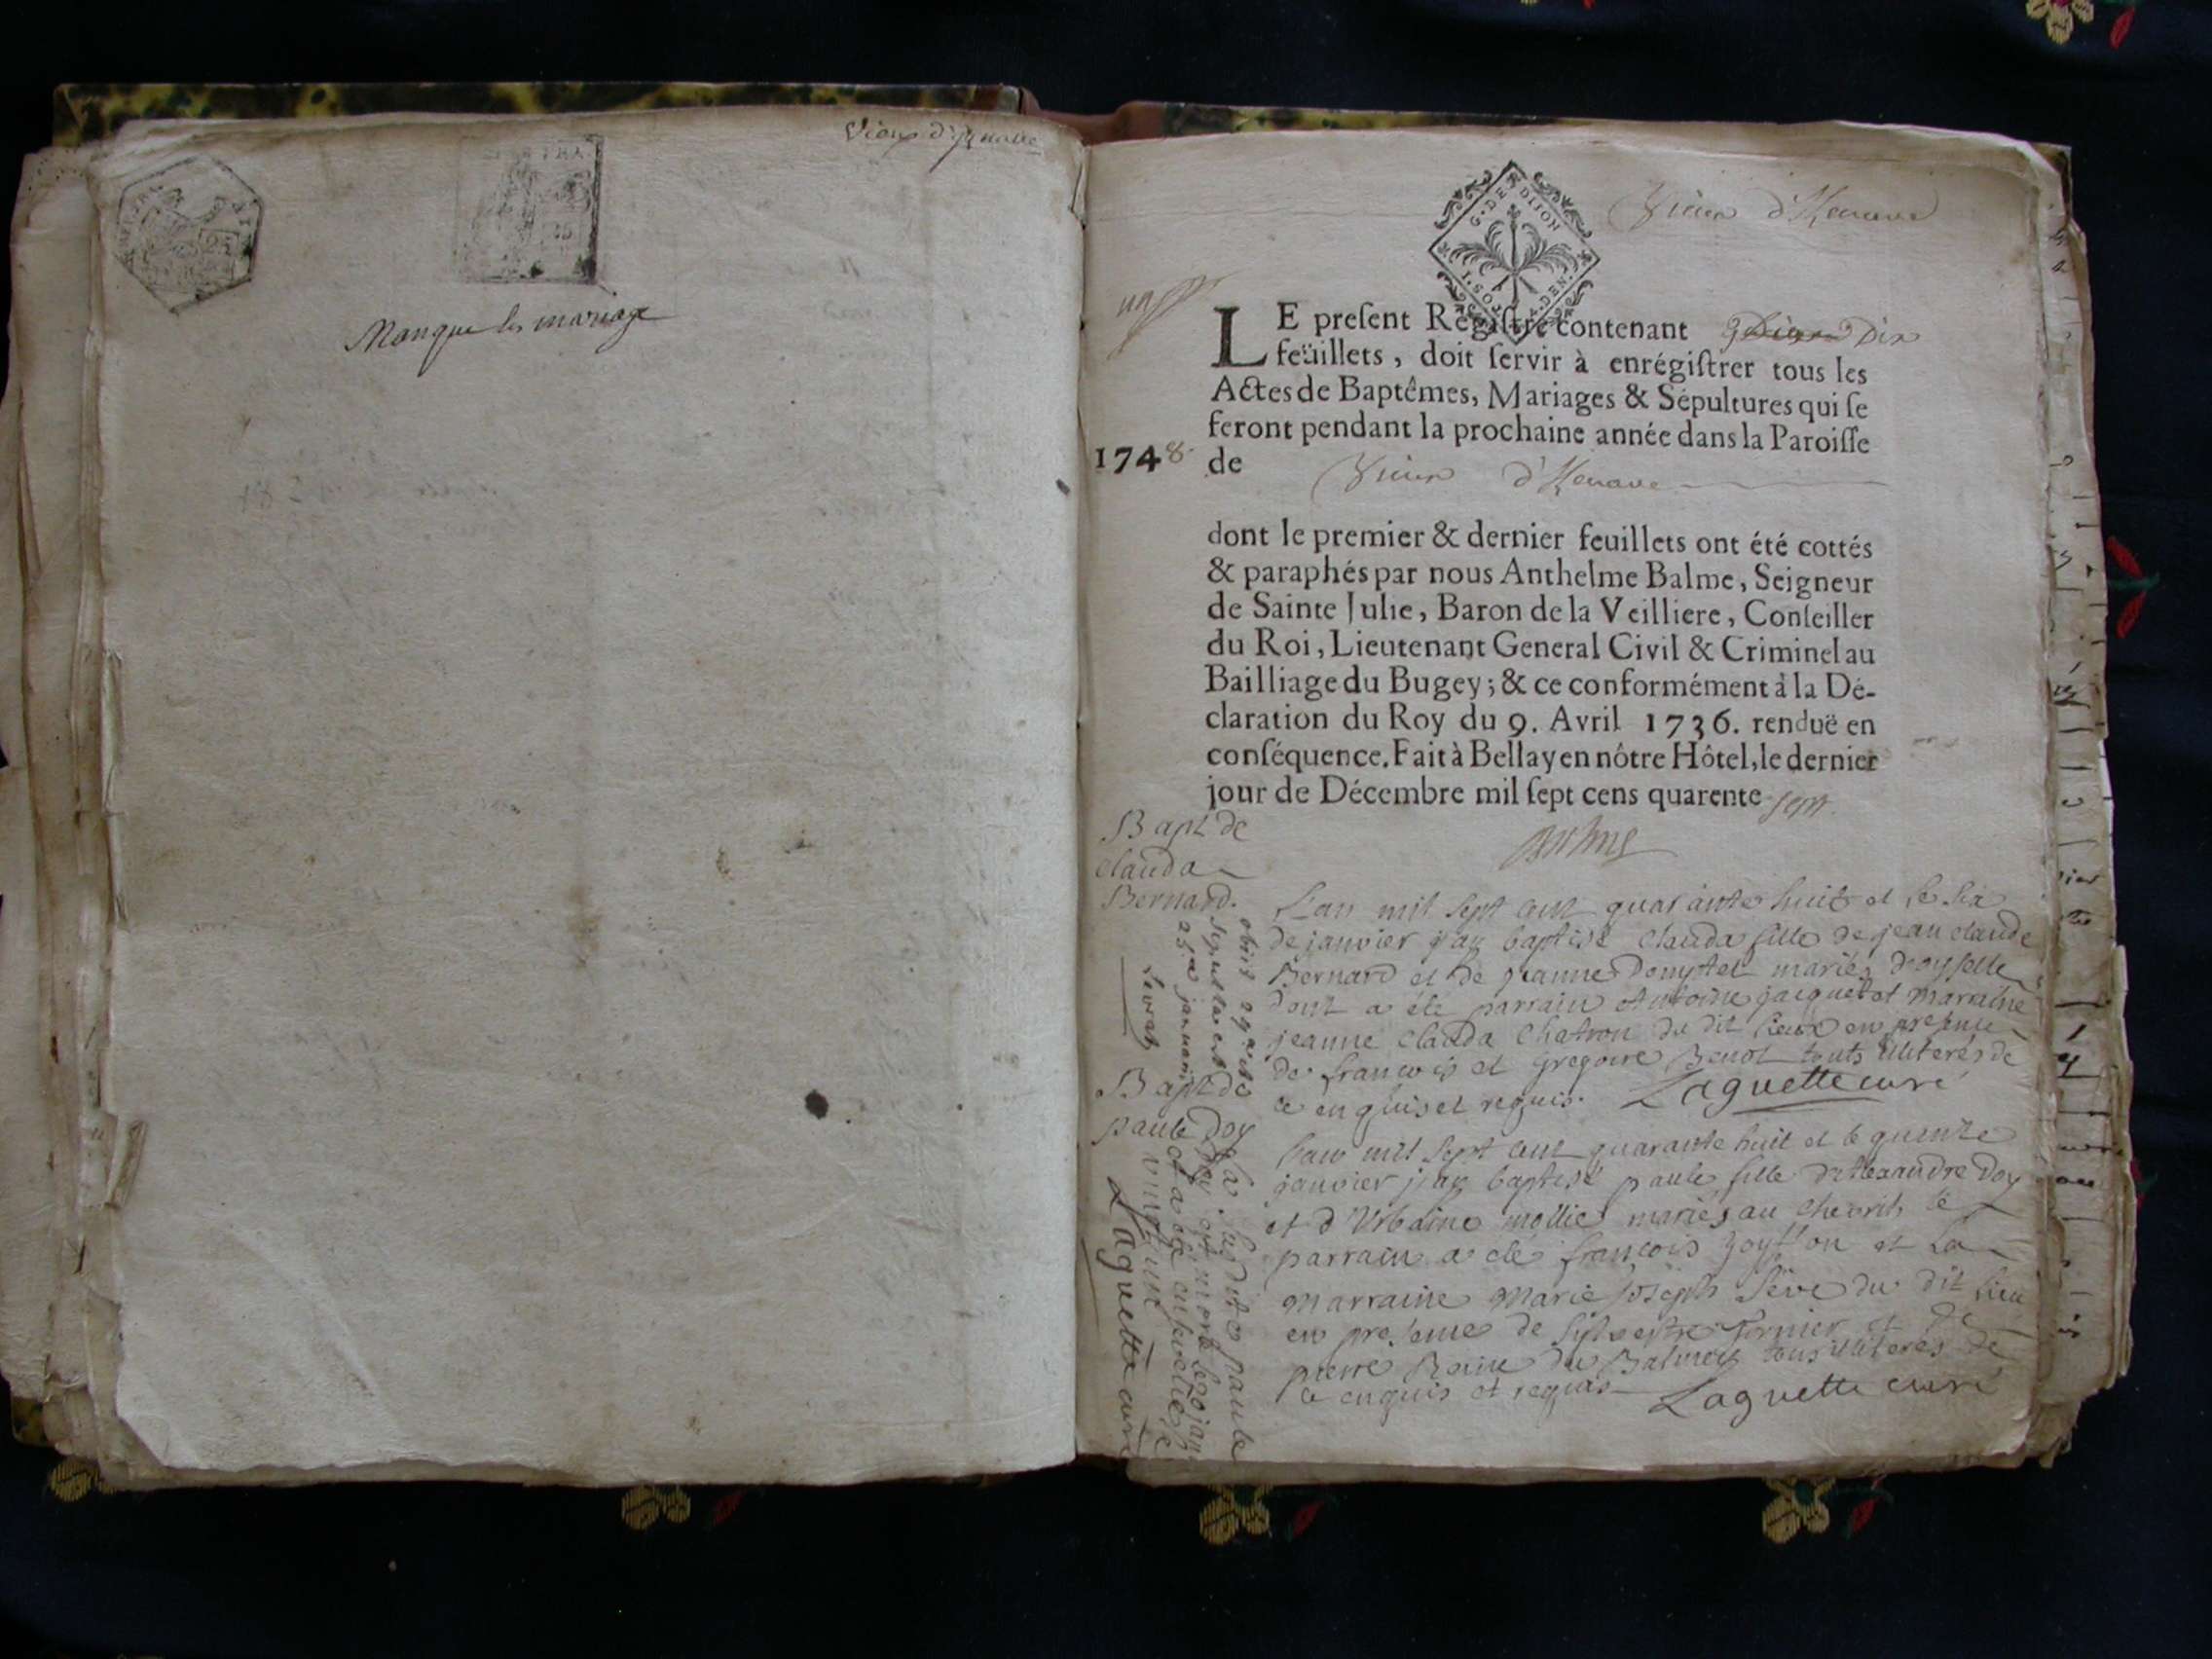 Vieux d'Izenave
Manque les mariage
G. DE DIJON
1. SOL
DEN.
Vieux d'Izenave
LE preſent Regiſtre contenant Dix
feüillets, doit ſervir à enrégiſtrer tous les
Actes de Baptêmes, Mariages & Sépultures qui ſe
feront pendant la prochaine année dans la Paroiſſe
1748. de Vieux d'Izenave
dont le premier & dernier feuillets ont été cottés
& paraphés par nous Anthelme Balme, Seigneur
de Sainte Julie, Baron de la Veilliere, Conſeiller
du Roi, Lieutenant General Civil & Criminel au
Bailliage du Bugey; & ce conformément à la Dé-
claration du Roy du 9. Avril 1736. renduë en
conſéquence. Fait à Bellay en nôtre Hôtel, le dernier
jour de Décembre mil ſept cens quarente sept.
Balme
Bapt de
clauda
Bernard.
L'an mil sept cent quarante huit et le six
de janvier j'ay baptisé clauda fille de jean claude
Bernard et de jeanne mariés
dont a été parrain Antoine jacquet et marraine
jeanne clauda Chatron du dit lieu en presence
de francois et Gregoire Benot touts illiterés de
ce enquis et requis. Laguette curé
obiit
sepulta est
25a januarii
Bapt de
paule Doy
L'an mil sept cent quarante huit et le quinze
janvier j'ay baptisé paule fille d'Alexandre Doy
et d'Urbaine mollie mariés au Chevril le
parrain a été françois et La
marraine marie joseph Seve du dit lieu
en presence de Silvestre fornier et de
pierre du Balmey tous illiterés de
ce enquis et requis Laguette curé
la susdite paule
Doy est morte le 20 jan
et a été ensevelie le
vingt un
Laguette curé